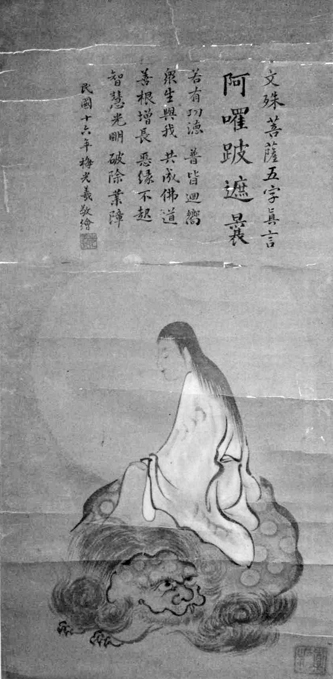 文殊菩薩五字真言
阿囉跛遮曩
若有功德 普皆迴嚮
眾生與我 共成佛道
善根增長 惡緣不起
智慧光明 破除業障
民國十六年梅光羲敬繪